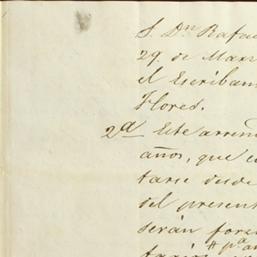 S. Dn Rafae
29. de Marz
el Escriban
Flores.
2a Este arrend
años, que c
tarse desde
del present
serán forz
# pa a